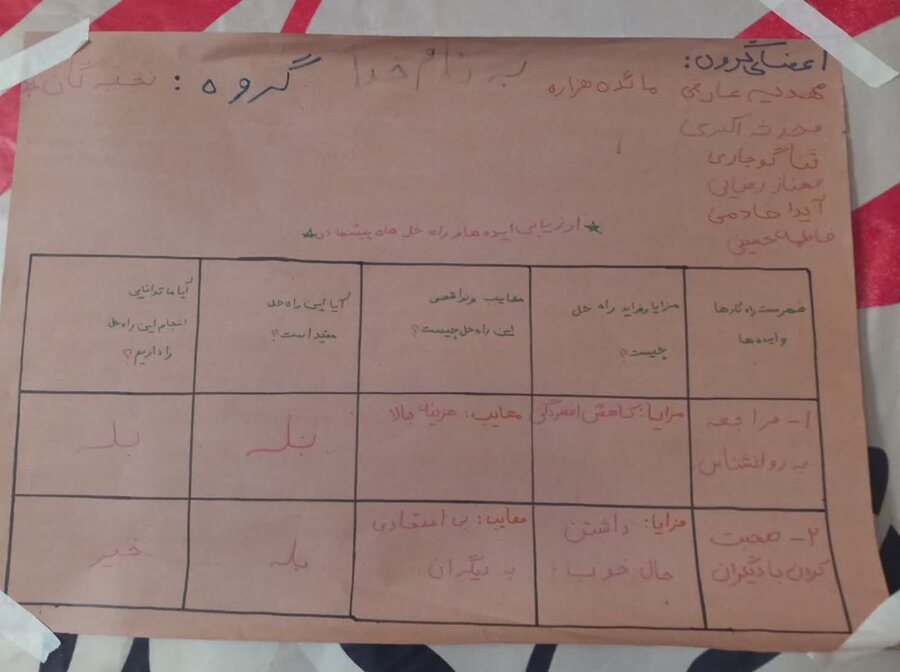 به نام خدا
گروه: نخبه گان*
اعضای گروه:
مهدیه عارفی مائده هزاره
محدثه اکبری
ثنا گوجاری
مهناز رضایی
آیدا خادمی
فاطمه حسینی
*ارزیابی ایده ها و راه حل های پیشنهادی*
فهرست راه کارها
و ایده ها
مزایا و فواید راه حل
چیست؟
معایب و نواقص
این راه حل چیست؟
آیا این راه حل
مفید است؟
آیا ما توانایی
انجام این راه حل
را داریم؟
۱- مراجعه
به روانشناس
مزایا: کاهش افسردگی
معایب: هزینه بالا
بله
بله
۲- صحبت
کردن با دیگران
مزایا: داشتن
حال خوب
معایب: بی اعتمادی
به دیگران
بله
خیر